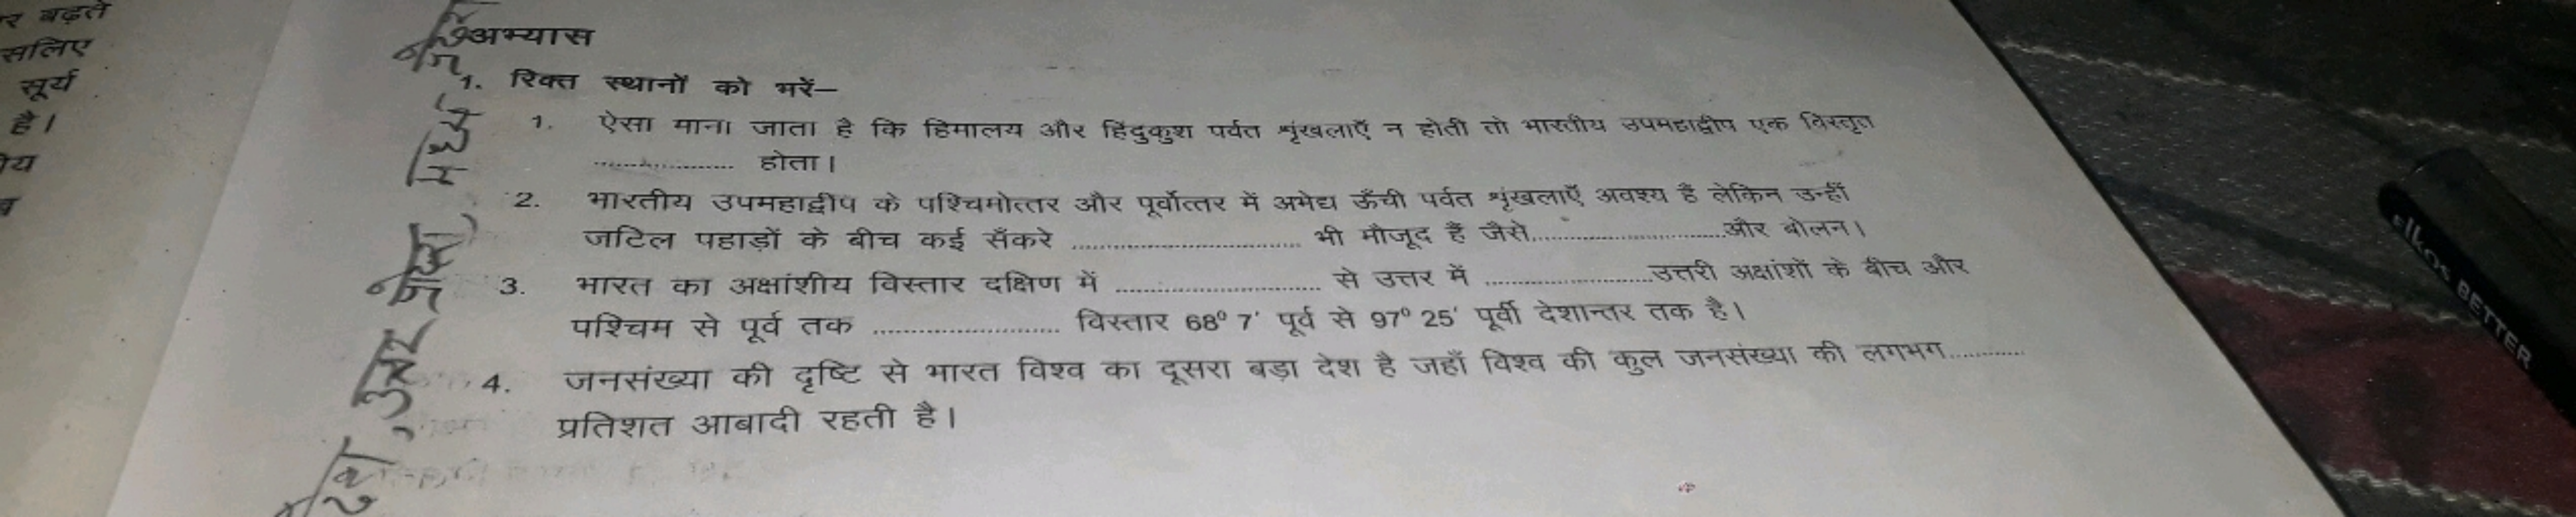 र बढ़ते
सलिए
सूर्य
है।
अभ्यास
1. रिक्त स्थानों को भरें–
1. ऐसा माना जाता है कि हिमालय और हिंदुकुश पर्वत शृंखलाएँ न होती तो भारतीय उपमहाद्वीप एक विस्तृत
.................... होता।
2. भारतीय उपमहाद्वीप के पश्चिमोत्तर और पूर्वोत्तर में अभेद्य ऊँची पर्वत शृंखलाएँ अवश्य हैं लेकिन उन्हीं
जटिल पहाड़ों के बीच कई सँकरे .................... भी मौजूद हैं जैसे....................और बोलन।
3. भारत का अक्षांशीय विस्तार दक्षिण में .................... से उत्तर में ....................उत्तरी अक्षांशों के बीच और
पश्चिम से पूर्व तक .................... विस्तार 68° 7' पूर्व से 97° 25' पूर्वी देशान्तर तक है।
4. जनसंख्या की दृष्टि से भारत विश्व का दूसरा बड़ा देश है जहाँ विश्व की कुल जनसंख्या की लगभग............
प्रतिशत आबादी रहती है।
elkos BETTER